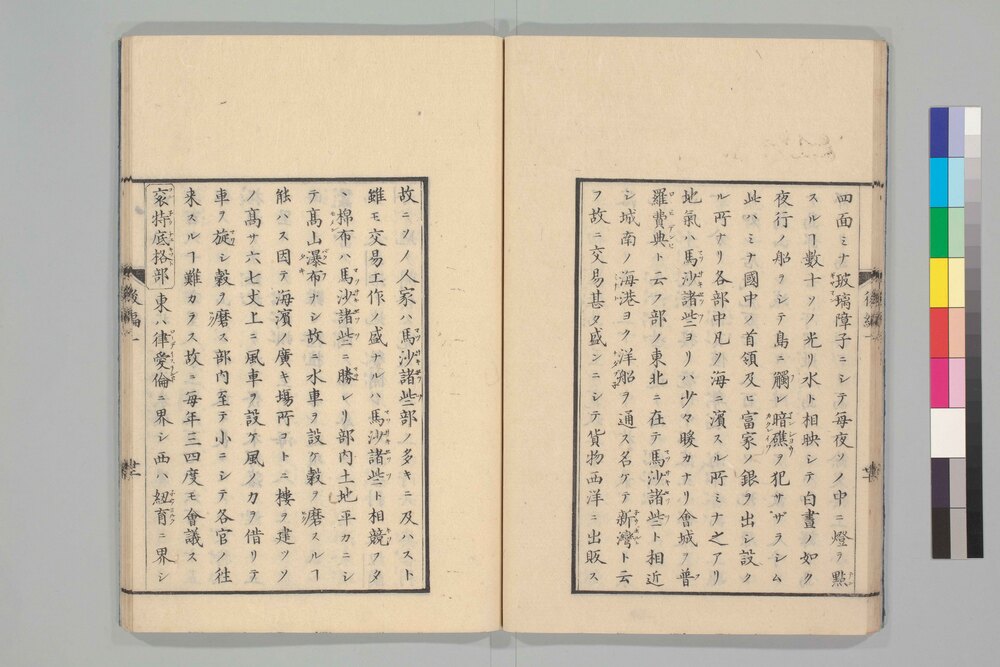 四面ミナ玻璃障子ニシテ毎夜ソノ中ニ燈ヲ點
スルヿ數十ソノ光リ水ト相映シテ白晝ノ如ク
夜行ノ船ヲシテ島ニ觸レ暗礁ヲ犯サザラシム
此ハミナ國中ノ首領及ヒ富家ノ銀ヲ出シ設ク
ル所ナリ各部中凡ソ海ニ濱スル所ミナ之アリ
地氣ハ馬沙諸些ヨリハ少々暖カナリ會城ヲ普
羅費典ト云フ部ノ東北ニ在テ馬沙諸些ト相近
シ城南ノ海港ヨク洋船ヲ通ス名ケテ新灣ト云
フ故ニ交易甚タ盛ンニシテ貨物西洋ニ出販ス
故ニソノ人家ハ馬沙諸些部ノ多キニ及ハスト
雖モ交易工作ノ盛ナルハ馬沙諸些ト相競フタ
ヽ棉布ハ馬沙諸些ニ勝レリ部内土地平カニシ
テ高山瀑布ナシ故ニ水車ヲ設ケ穀ヲ磨スルヿ
能ハス因テ海濱ノ廣キ場所コトニ樓ヲ建ツソ
ノ高サ六七丈上ニ風車ヲ設ケ風ノカヲ借リテ
車ヲ旋シ穀ヲ磨ス部内至テ小ニシテ各官ノ往
来スルヿ難カラス故ニ毎年三四度モ會議ス
袞特底格部 東ハ律愛倫ニ界シ西ハ紐育ニ界シ